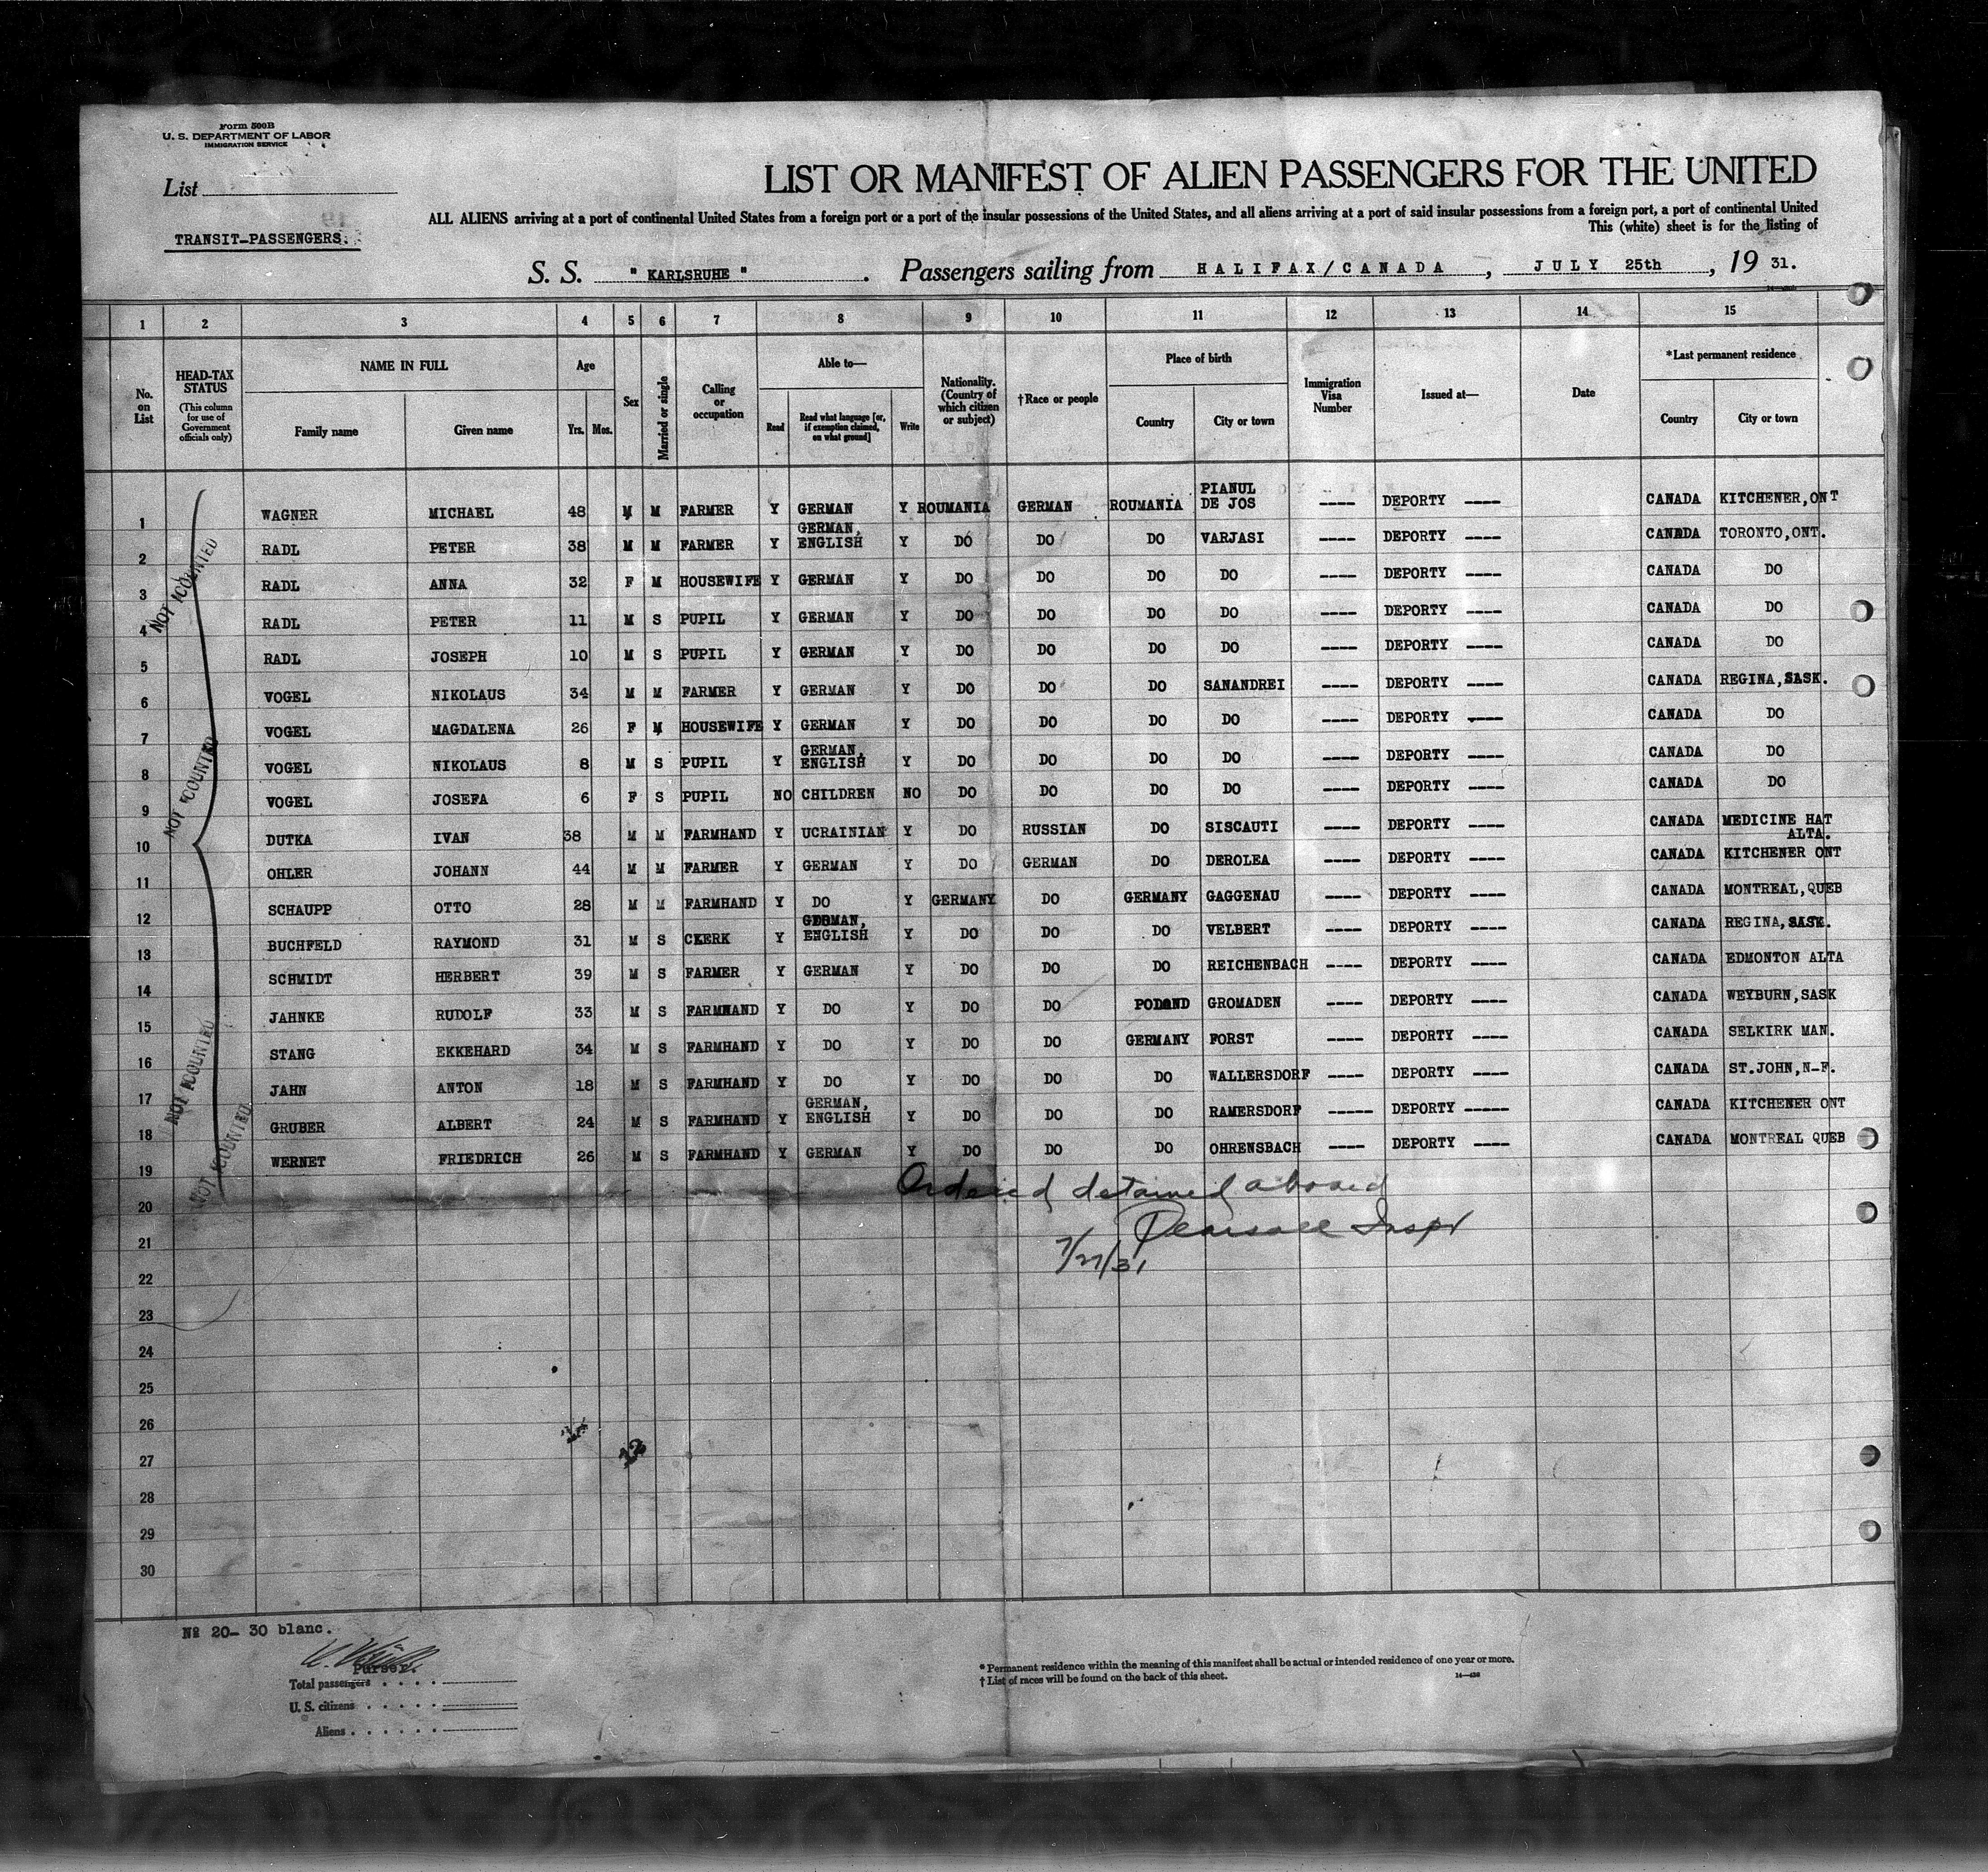 Form 500B
U. S. DEPARTMENT OF LABOR
IMMIGRATION SERVICE
List
TRANSIT-PASSENGERS.
LIST OR MANIFEST OF ALIEN PASSENGERS FOR THE UNITED
ALL ALIENS arriving at a port of continental United States from a foreign port or a port of the insular possessions of the United States, and all aliens arriving at a port of said insular possessions from a foreign port, a port of continental United
This (white) sheet is for the listing of
S. S. " KARLSRUHE " . Passengers sailing from HALIFAX/CANADA , JULY 25th , 19 31.
1 2 3 4 5 6 7 8 9 10 11 12 13 14 15
No. on List
HEAD-TAX STATUS
(This column for use of Government officials only)
NAME IN FULL
Family name Given name
Age
Yrs. Mos.
Sex
Married or single
Calling or occupation
Able to—
Read Read what language [or, if exemption claimed, on what ground] Write
Nationality. (Country of which citizen or subject)
†Race or people
Place of birth
Country City or town
Immigration Visa Number
Issued at—
Date
*Last permanent residence
Country City or town
1 WAGNER MICHAEL 48 M M FARMER Y GERMAN Y ROUMANIA GERMAN ROUMANIA PIANUL DE JOS ---- DEPORTY ---- CANADA KITCHENER,ONT
2 RADL PETER 38 M M FARMER Y GERMAN, ENGLISH Y DO DO DO VARJASI ---- DEPORTY ---- CANADA TORONTO,ONT.
3 RADL ANNA 32 F M HOUSEWIFE Y GERMAN Y DO DO DO DO ---- DEPORTY ---- CANADA DO
4 RADL PETER 11 M S PUPIL Y GERMAN Y DO DO DO DO ---- DEPORTY ---- CANADA DO
5 RADL JOSEPH 10 M S PUPIL Y GERMAN Y DO DO DO DO ---- DEPORTY ---- CANADA DO
6 VOGEL NIKOLAUS 34 M M FARMER Y GERMAN Y DO DO DO SANANDREI ---- DEPORTY ---- CANADA REGINA,SASK.
7 VOGEL MAGDALENA 26 F M HOUSEWIFE Y GERMAN Y DO DO DO DO ---- DEPORTY ---- CANADA DO
8 VOGEL NIKOLAUS 8 M S PUPIL Y GERMAN, ENGLISH Y DO DO DO DO ---- DEPORTY ---- CANADA DO
9 VOGEL JOSEFA 6 F S PUPIL NO CHILDREN NO DO DO DO DO ---- DEPORTY ---- CANADA DO
10 DUTKA IVAN 38 M M FARMHAND Y UCRAINIAN Y DO RUSSIAN DO SISCAUTI ---- DEPORTY ---- CANADA MEDICINE HAT ALTA.
11 OHLER JOHANN 44 M M FARMER Y GERMAN Y DO GERMAN DO DEROLEA ---- DEPORTY ---- CANADA KITCHENER ONT
12 SCHAUPP OTTO 28 M M FARMHAND Y DO Y GERMANY DO GERMANY GAGGENAU ---- DEPORTY ---- CANADA MONTREAL,QUEB
13 BUCHFELD RAYMOND 31 M S CKERK Y GERMAN, ENGLISH Y DO DO DO VELBERT ---- DEPORTY ---- CANADA REGINA,SASK.
14 SCHMIDT HERBERT 39 M S FARMER Y GERMAN Y DO DO DO REICHENBACH ---- DEPORTY ---- CANADA EDMONTON ALTA
15 JAHNKE RUDOLF 33 M S FARMHAND Y DO Y DO DO GROMADEN ---- DEPORTY ---- CANADA WEYBURN,SASK
16 STANG EKKEHARD 34 M S FARMHAND Y DO Y DO DO GERMANY FORST ---- DEPORTY ---- CANADA SELKIRK MAN.
17 JAHN ANTON 18 M S FARMHAND Y DO Y DO DO DO WALLERSDORF ---- DEPORTY ---- CANADA ST.JOHN,N-F.
18 GRUBER ALBERT 24 M S FARMHAND Y GERMAN, ENGLISH Y DO DO DO RAMERSDORF ----- DEPORTY ----- CANADA KITCHENER ONT
19 WERNET FRIEDRICH 26 M S FARMHAND Y GERMAN Y DO DO DO OHRENSBACH ---- DEPORTY ---- CANADA MONTREAL QUEB
NOT COUNTED
NOT COUNTED
NOT COUNTED
NOT COUNTED
Ordered detained aboard
Pearsall Inspr
7/27/31
20
21
22
23
24
25
26
27
12
28
29
30
№ 20- 30 blanc.
Purser.
Total passengers
U. S. citizens
Aliens
* Permanent residence within the meaning of this manifest shall be actual or intended residence of one year or more.
† List of races will be found on the back of this sheet.